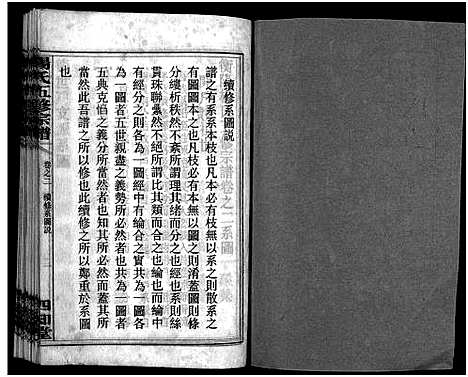 續修系圖說
譜之有系系本枝也凡本必有枝無以系之則散系之
有圖圖本之也凡枝必有本無以圖之則淆蓋圖則條
分縷析秩然不紊所謂理其緒而分之也經也系則絲
貫珠聯纍然不絕所謂比其類而合之也綸也而綸中
有經分之則各為一圖經中有綸合之實共為一圖各
為一圖者五世親盡之義勢所必然者也共為一圖者
五典克惇之義分所當然者也知其所必然而蓋其所
當然此吾譜之所以修也此續修之所以鄭重於系圖
也
氏五修宗譜
卷之二
續修系圖說